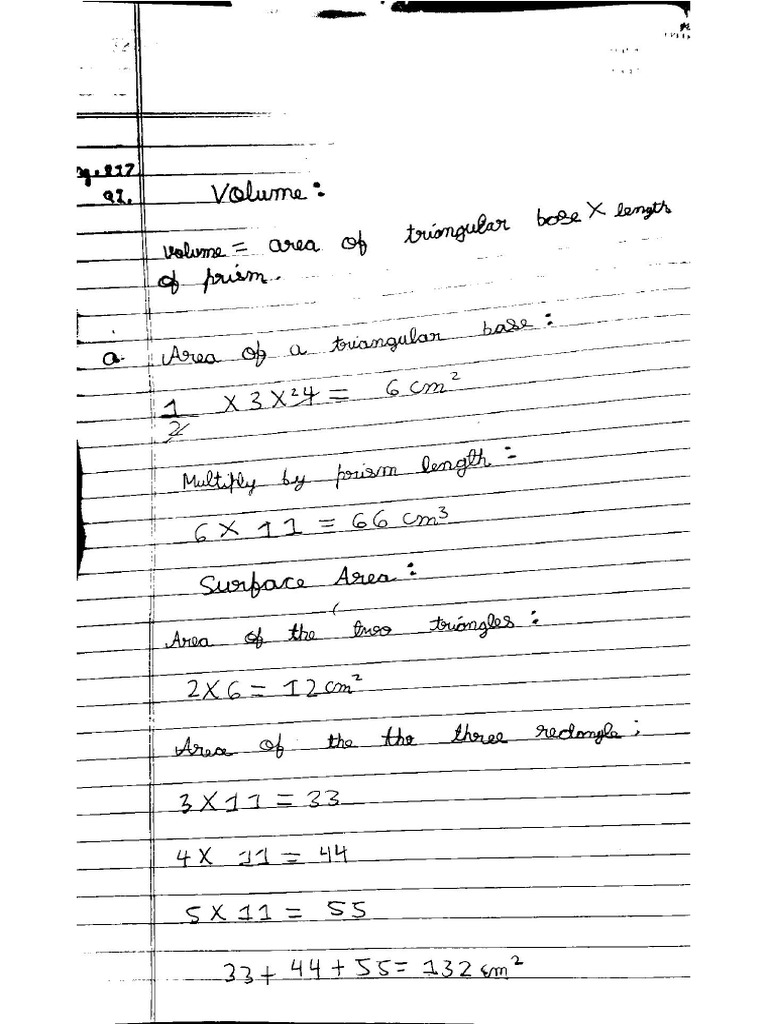 pg. 217
Q1. Volume:
Volume = area of triangular base × length
of prism.
a. Area of a triangular base:
1/2 × 3 × 4 2 = 6 cm²
Multiply by prism length:
6 × 11 = 66 cm³
Surface Area:
Area of the two triangles:
2 × 6 = 12 cm²
Area of the the three rectangle:
3 × 11 = 33
4 × 11 = 44
5 × 11 = 55
33 + 44 + 55 = 132 cm²